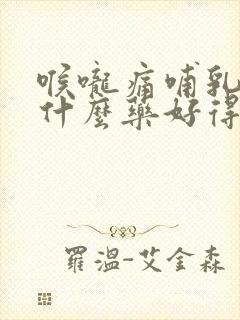 喉嚨痛哺乳
什麼藥好得
羅溫-艾金森